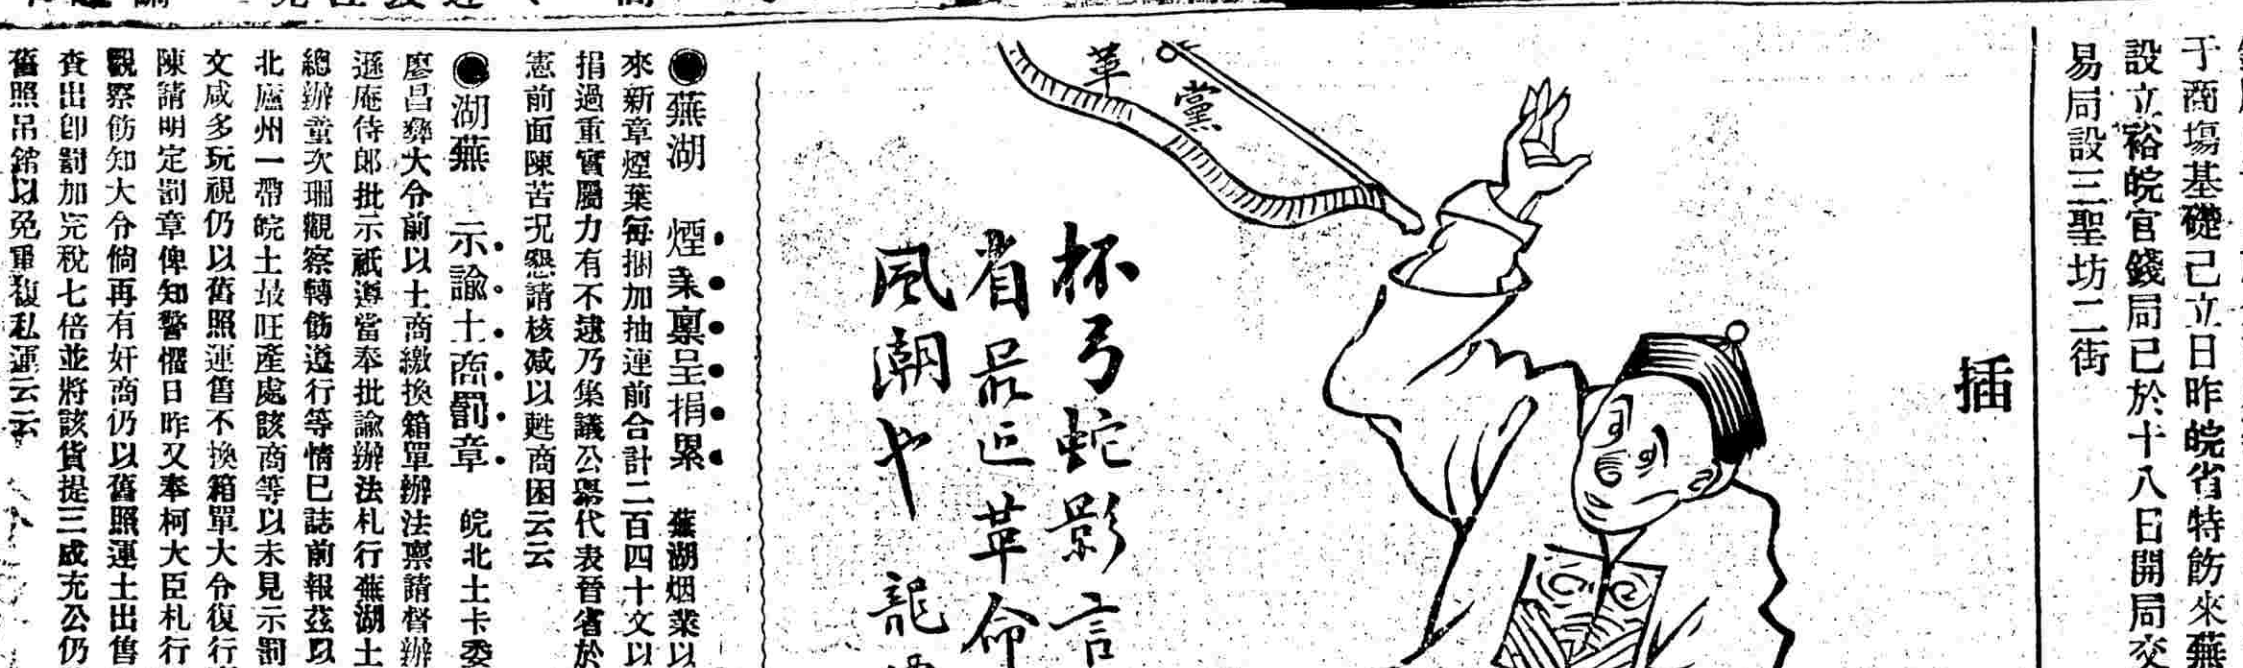 于商塲基礎已立日昨皖省特飭來蕪
設立裕皖官錢局已於十八日開局交
易局設三聖坊二街
插
革黨
杯弓蛇影言
省呂近革命
風潮也 龍
●蕪湖 煙業稟呈捐累 蕪湖烟業以
來新章煙葉每捆加抽連前合計二百四十文以
捐過重實屬力有不逮乃集議公舉代表晉省於
憲前面陳苦况懇請核减以甦商困云云
●湖蕪 示諭土商罰章 皖北土卡委
廖昌彝大令前以土商繳換箱單辦法禀請督辦
遜庵侍郎批示祇遵當奉批諭辦法札行蕪湖土
總辦童次珊觀察轉飭遵行等情已誌前報茲以
北廬州一帶皖土最旺產處該商等以未見示罰
文咸多玩視仍以舊照運售不換箱單大令復行
陳請明定罰章俾知警懼日昨又奉柯大臣札行
觀察飭知大令倘再有奸商仍以舊照運土出售
查出卽罰加完稅七倍並將該貨提三成充公仍
舊照吊銷以免重複私運云云